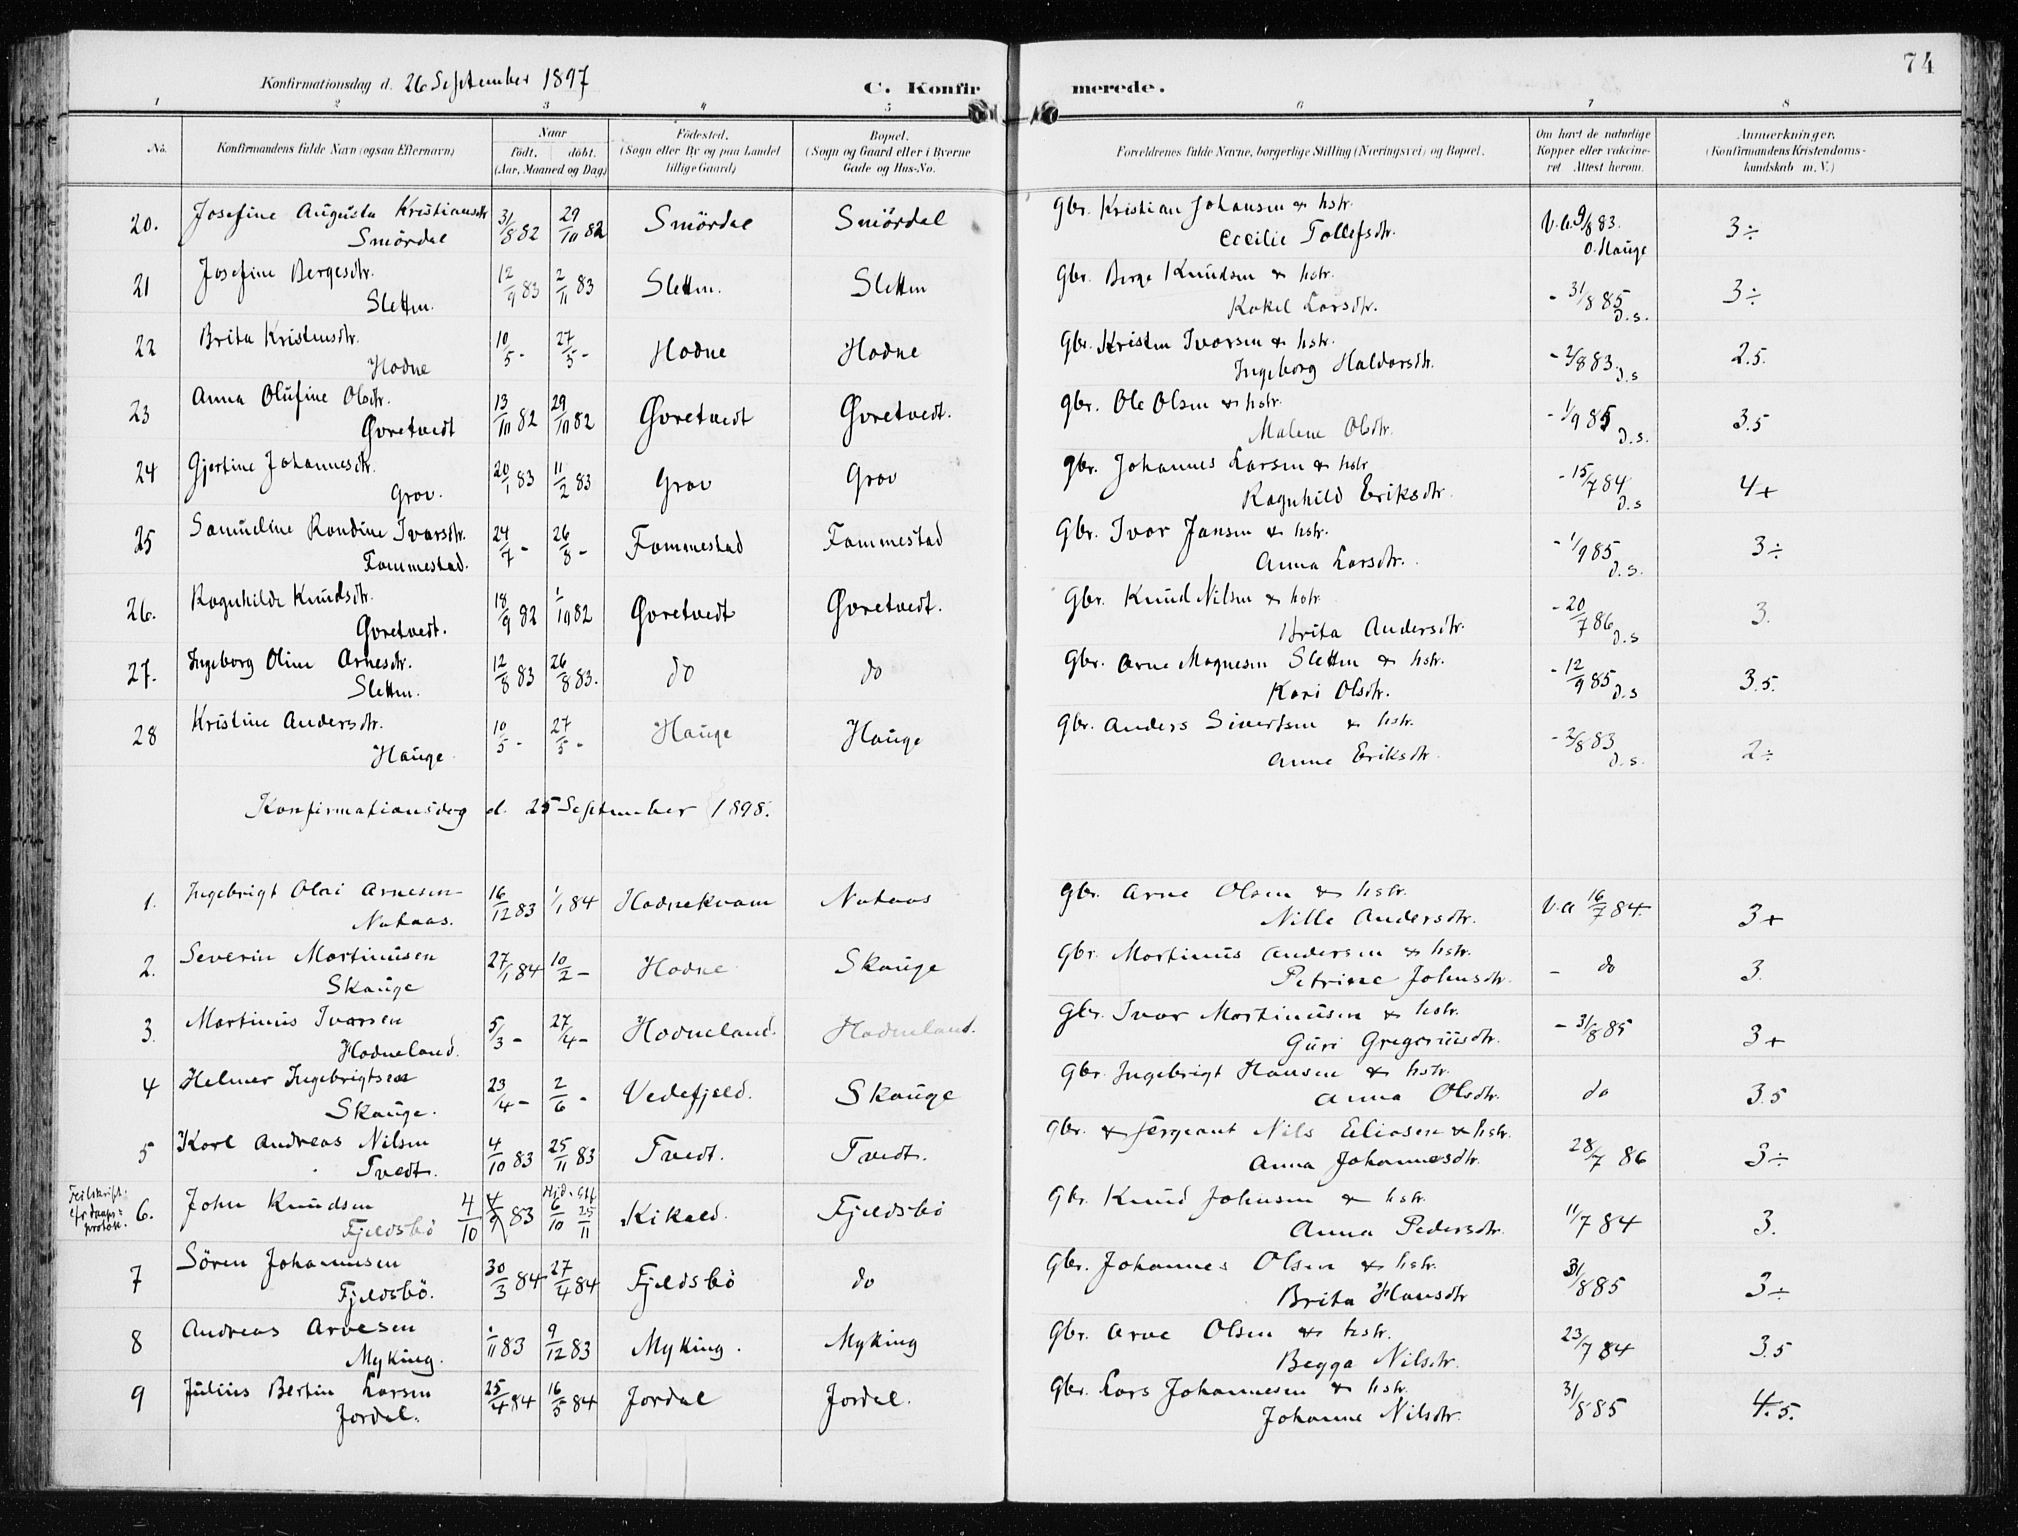 74
Konfirmationsdag d. 26 September 1897
C. Konfirmerede.
1 2 3 4 5 6 7 8
No.
Konfirmandens fulde Navn (ogsaa Efternavn)
Naar
født. døbt.
(Aar, Maaned og Dag)
Fødested.
(Sogn eller By og paa Landet
tillige Gaard)
Bopæl.
(Sogn og Gaard eller i Byerne
Gade og Hus-No.
Forældrenes fulde Navne, borgerlige Stilling (Næringsvei) og Bopæl.
Om havt de naturlige
Kopper eller vaccine-
ret Attest herom.
Anmærkninger.
(Konfirmandens Kristendoms-
kundskab m. V.)
20. Josefine Augusta Kristiansdtr. 31/8 82 29/10 82 Smördal Smördal Gbr. Kristian Johansen & hstr. V.a. 9/8 83.
Smördal Cecilie Tollefsdtr. O. Hauge 3÷
21 Josefine Bergesdtr. 12/9 83 2/11 83 Sletten. Sletten Gbr. Berge Knudsen & hstr. 3÷
Sletten. Rakel Larsdtr. - 31/8 85 d.s.
22 Brita Kristensdtr. 10/5 - 27/5 - Hodne Hodne Gbr. Kristen Ivarsen & hstr. 2.5.
Hodne Ingeborg Haldorsdtr. - 2/8 83. d.s
23 Anna Olufine Olsdtr. 13/10 82 29/10 82 Gvretvedt Gvretvedt. Gbr. Ole Olsen & hstr. - 1/9 85 3.5
Gvretvedt Malene Olsdtr. d.s.
24 Gjertine Johannesdtr. 20/1 83 11/2 83 Grov Grov Gbr. Johannes Larsen & hstr - 15/7 84 4+
Grov. Ragnhild Eriksdtr. d.s
25 Samueline Randine Ivarsdtr. 24/7 - 26/8 - Fammestad Fammestad Gbr. Ivar Jansen & hstr. - 1/9 85 3÷
Fammestad. Anna Larsdtr. d.s.
26. Ragnhilde Knudsdtr. 18/9 82 1/10 82 Gvretvedt Gvretvedt. Gbr. Knud Nilsen & hstr. - 20/7 86 3.
Gvretvedt. Brita Andersdtr. d.s
27. Ingeborg Oline Arnesdtr. 12/8 83 26/8 83. do do Gbr. Arne Magnesen Sletten & hstr. - 12/9 85 3.5.
Sletten. Kari Olsdtr. d.s
28 Kristine Andersdtr. 10/5 - 27/5 - Hauge Hauge Gbr. Anders Sivertsen & hstr. - 2/8 83 2÷
Hauge Anne Eriksdtr. d.s.
Konfirmationsdag d. 25 September 1898.
1. Ingebrigt Olai Arnesen 16/12 83 1/1 84 Hodnekvam Nataas Gbr. Arne Olsen & hstr. V.a 16/7 84. 3+
Nataas. Nille Andersdtr.
2. Severin Martinusen 27/1 84 10/2 - Hodne Skauge Gbr. Martinus Andersen & hstr. - do 3.
Skauge Petrine Johnsdtr.
3. Martinus Ivarsen 5/3 - 27/4 - Hodneland. Hodneland. Gbr. Ivar Martinusen & hstr. - 31/8 85 3+
Hodneland. Guri Gregoriusdtr.
4 Helmer Ingebrigtsen 23/4 - 2/6 - Vedefjeld. Skauge Gbr. Ingebrigt Hansen & hstr. do 3.5
Skauge. Anna Olsdtr.
5 Karl Andreas Nilsen 4/10 83 25/11 83 Tvedt. Tvedt. Gbr. & sergeant Nils Eliasen & hstr. 28/7 86 3÷
Tvedt. Anna Johannesdtr.
Feilskrift.
6. John Knudsen 4/10 83 Hjd. 6/10 25/11 Kikald. Fjeldsbö Gbr. Knud Johnsen & hstr. 11/7 84 3.
Fjeldsbö Anna Pedersdtr.
7 Sören Johannesen 30/3 84 27/4 84 Fjeldsbö do Gbr. Johannes Olsen & hstr. 31/8 85 3÷
Fjeldsbö. Brita Hansdtr
8 Andreas Arnesen 1/11 83 9/12 83 Myking. Myking Gbr. Arne Olsen & hstr. 23/7 84 3.5
Myking. Begga Nilsdtr.
9 Julius Bertin Larsen 25/4 84 16/5 84 Jordal Jordal. Gbr. Lars Johannesen & hstr. 31/8 85 4.5.
Jordal. Johanne Nilsdtr.